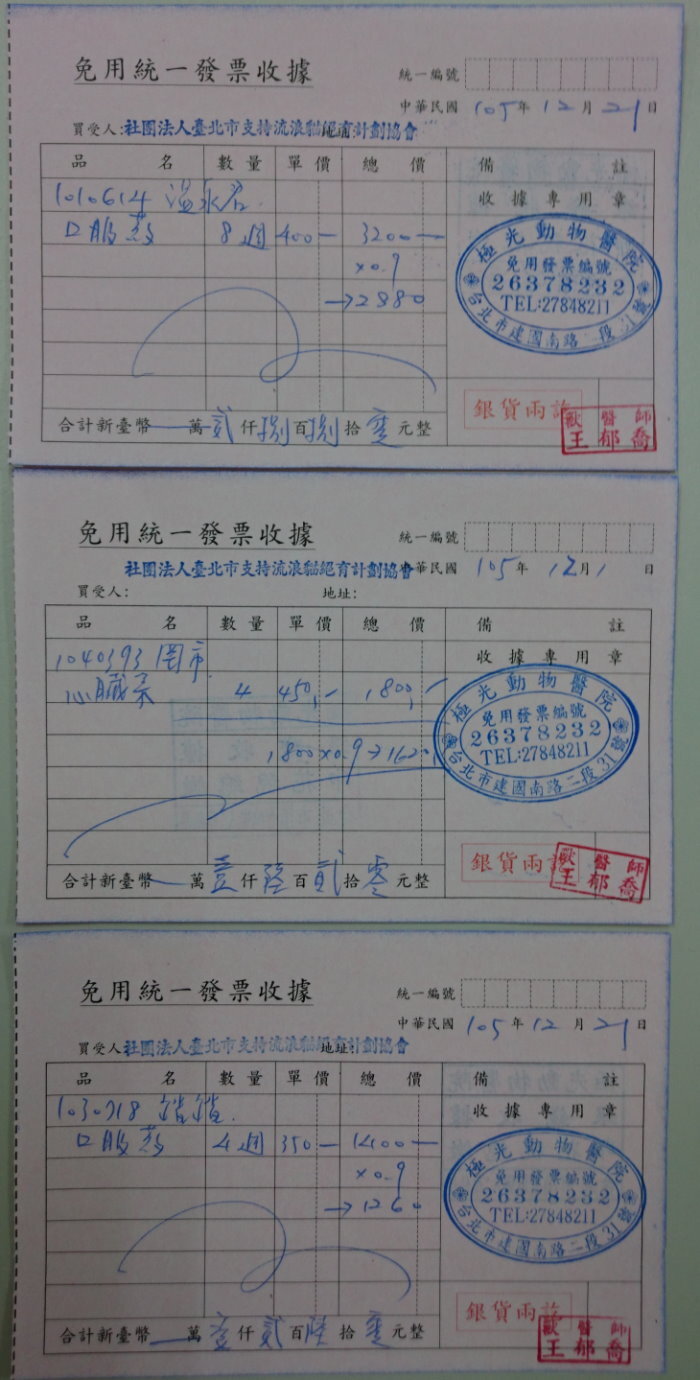 免用統一發票收據
統一編號
中華民國 105年 12月 21日
買受人:社團法人臺北市支持流浪貓絕育計劃協會
品名 數量 單價 總價 備註
收據專用章
1010614 溫泉君
口服藥 8週 400— 3200—
x0.9
→2880
極光動物醫院
免用發票編號
26378232
TEL:27848211
台北市建國南路二段31號
銀貨兩訖
獸醫師
王郁喬
合計新臺幣 — 萬 貳 仟 捌 百 捌 拾 零 元整
免用統一發票收據
統一編號
社團法人臺北市支持流浪貓絕育計劃協會
中華民國 105年 12月 1 日
買受人: 地址:
品名 數量 單價 總價 備註
收據專用章
1040393 罔市
心臟藥 4 450.- 1,800.-
1,800x0.9→1620
極光動物醫院
免用發票編號
26378232
TEL:27848211
台北市建國南路二段31號
銀貨兩訖
獸醫師
王郁喬
合計新臺幣 — 萬 壹 仟 陸 百 貳 拾 零 元整
免用統一發票收據
統一編號
中華民國 105年 12月 21日
買受人:社團法人臺北市支持流浪貓絕育計劃協會
地址:
品名 數量 單價 總價 備註
收據專用章
1030718
口服藥 4週 350— 1400—
x0.9
→1260
極光動物醫院
免用發票編號
26378232
TEL:27848211
台北市建國南路二段31號
銀貨兩訖
獸醫師
王郁喬
合計新臺幣 — 萬 壹 仟 貳 百 陸 拾 零 元整